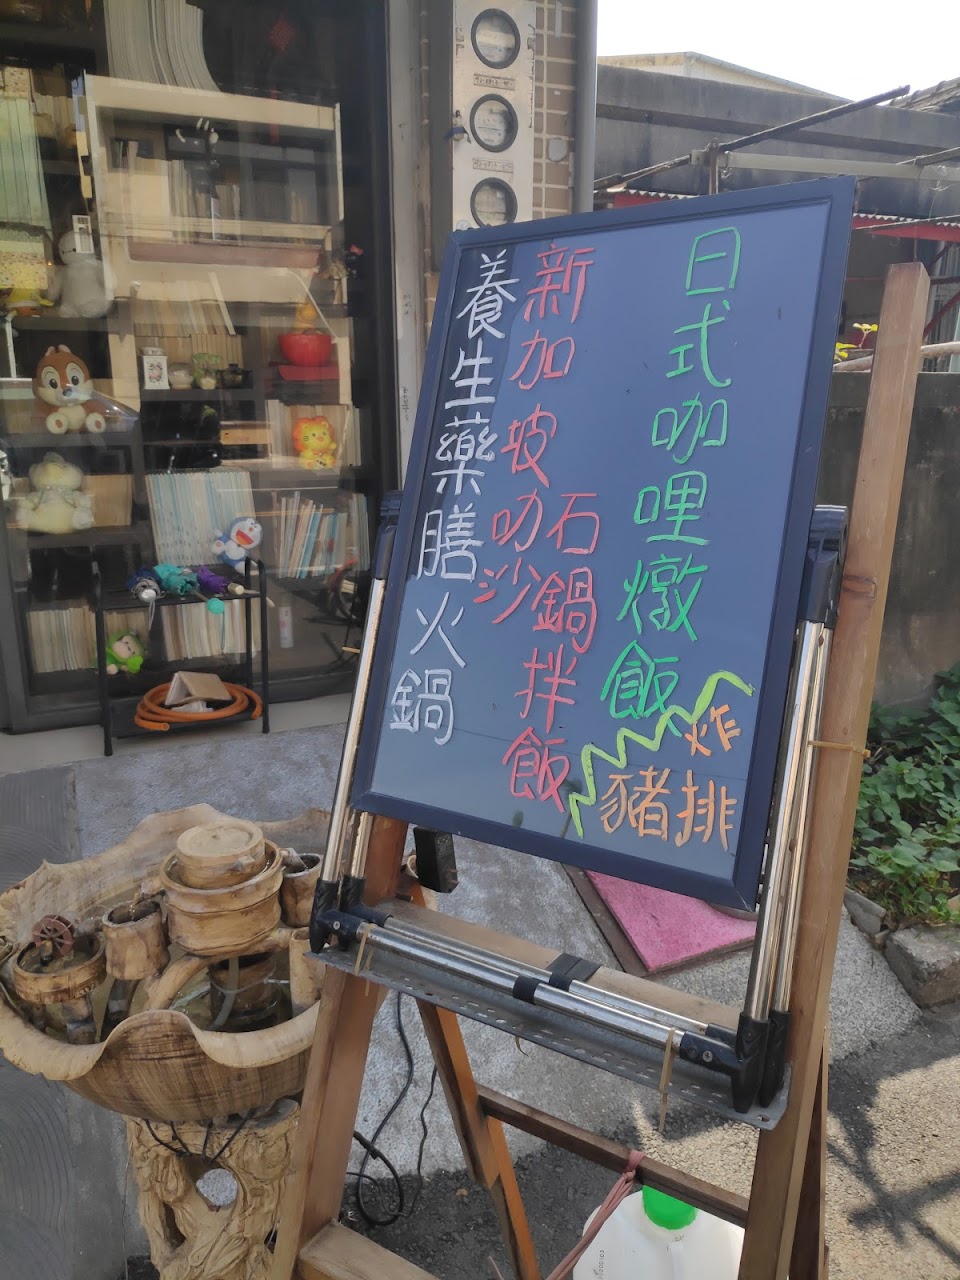 日式咖哩燉飯
炸
豬排
新加坡叻沙
石鍋拌飯
養生藥膳火鍋